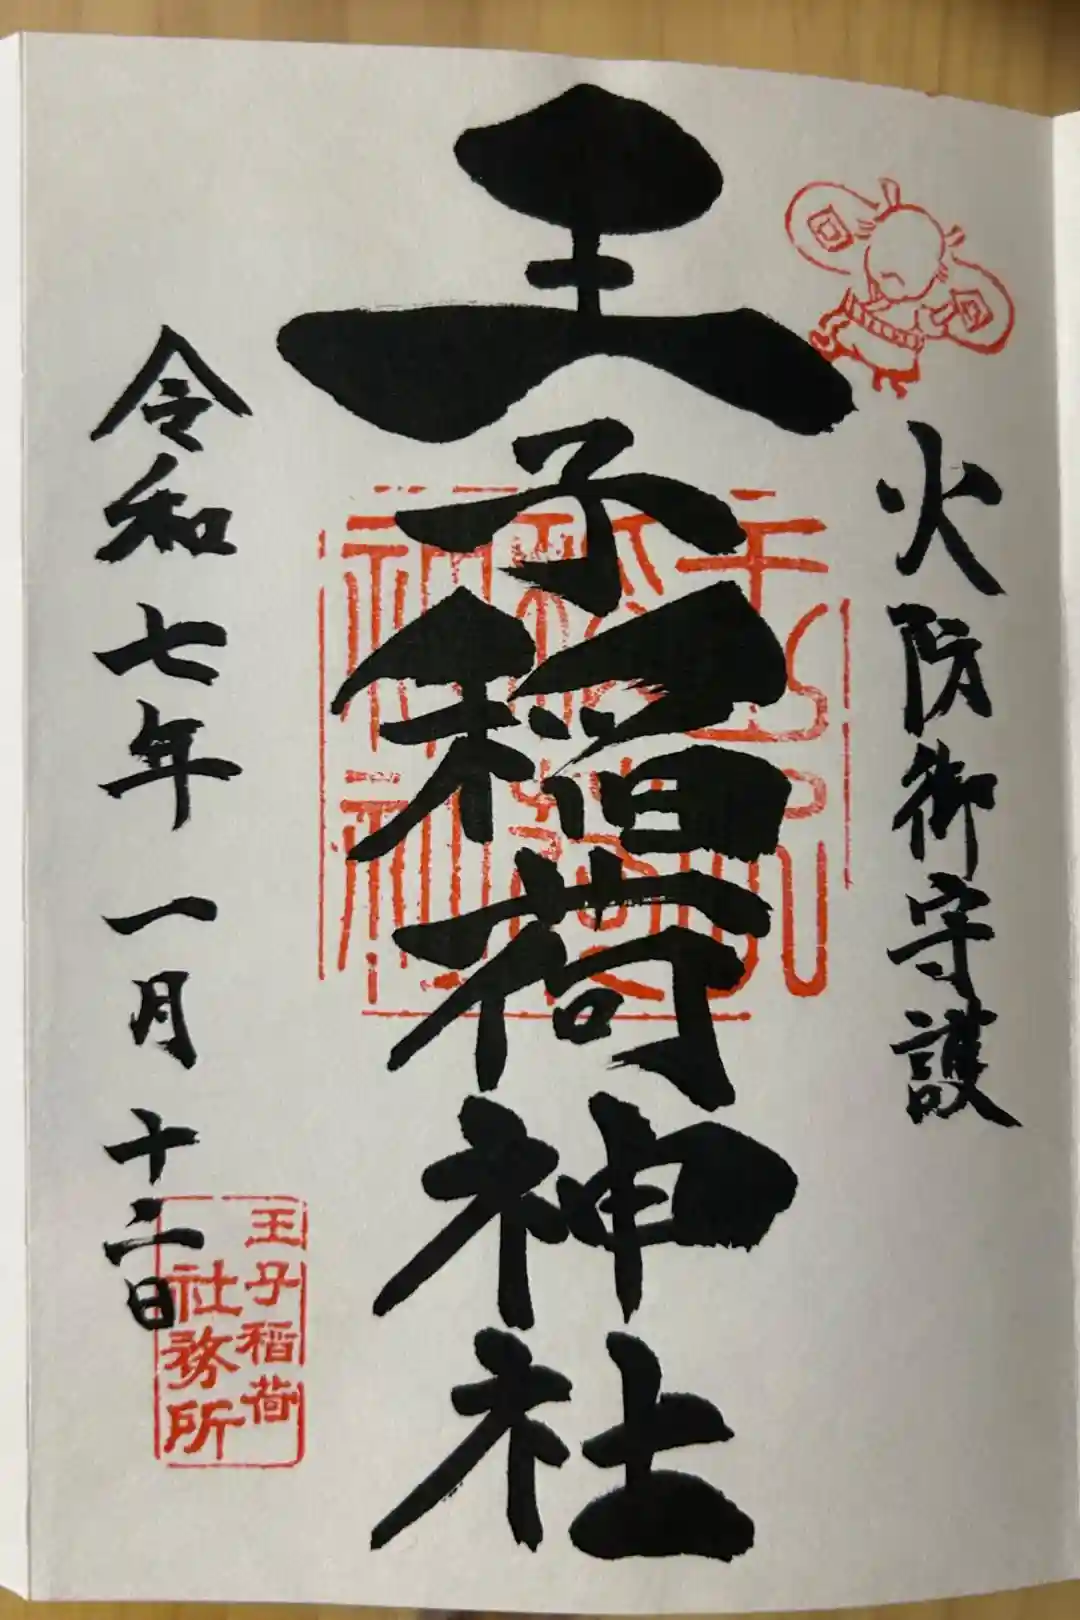 火防御守護
王子稲荷神社
令和七年一月十二日
王子稲荷
社務所